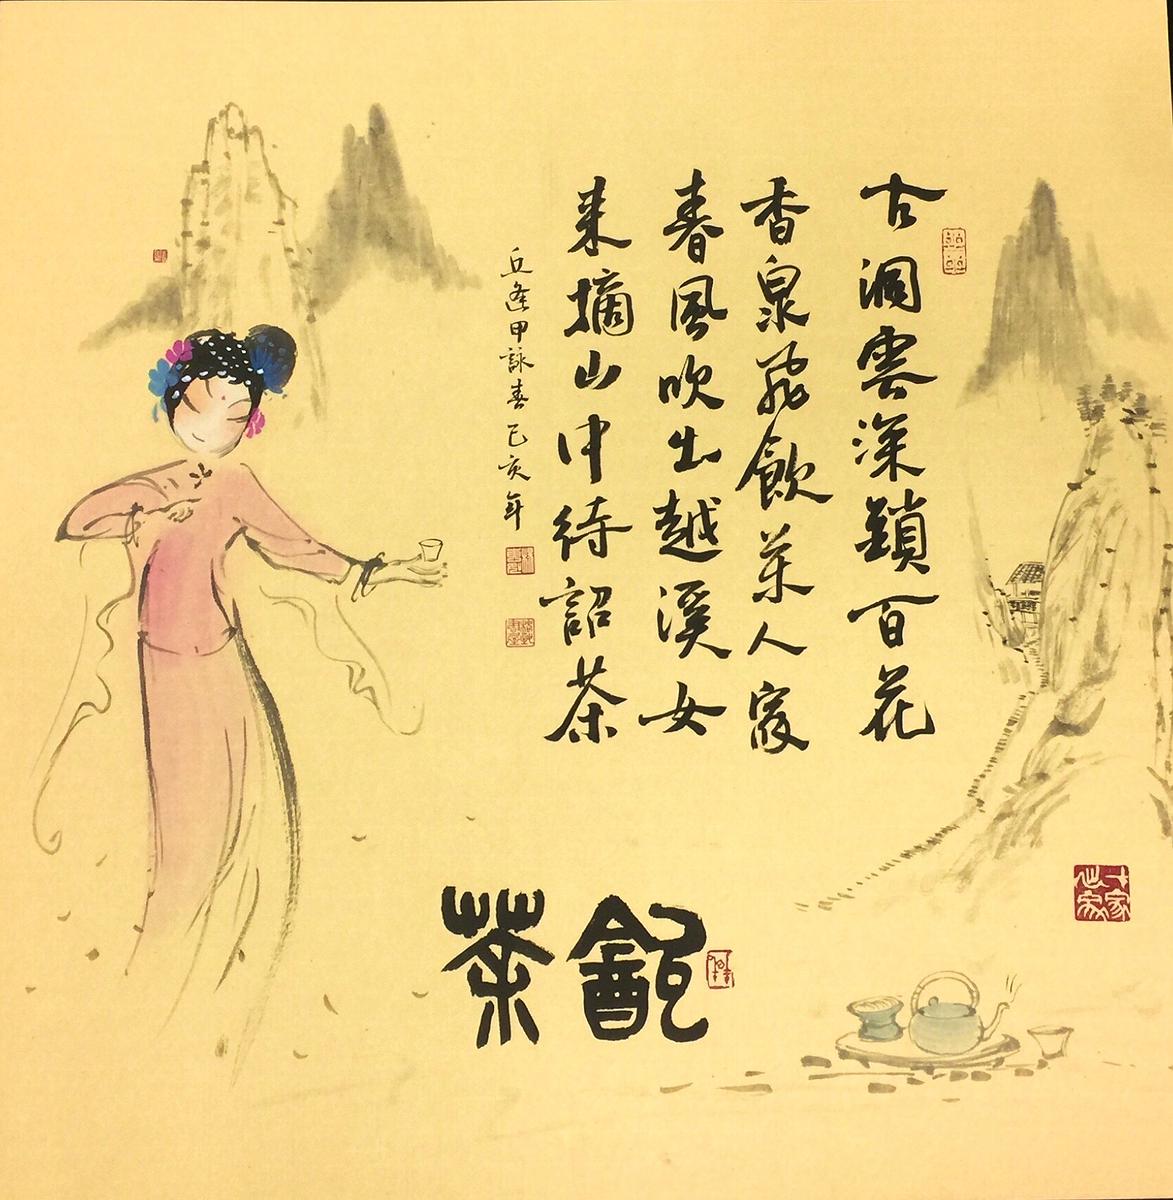 古洞雲深鎖百花
香泉飛飲萬人家
春風吹出越溪女
来摘山中待詔茶
丘逢甲詠春己亥年
茶